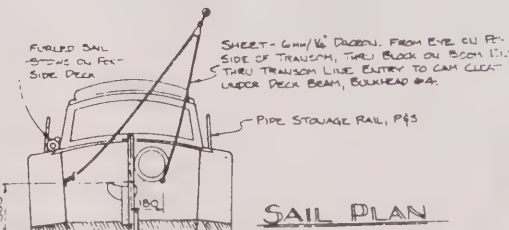 FURLED SAIL
STOWS ON
SIDE DECK
SHEET - 6MM/¼" DACRON. FROM EYE ON
SIDE OF TRANSOM, THRU BLOCK ON BOOM
THRU TRANSOM LINE ENTRY TO CAM CLEAT
UNDER DECK BEAM, BULKHEAD #4.
PIPE STOWAGE RAIL, P&S
180
SAIL PLAN